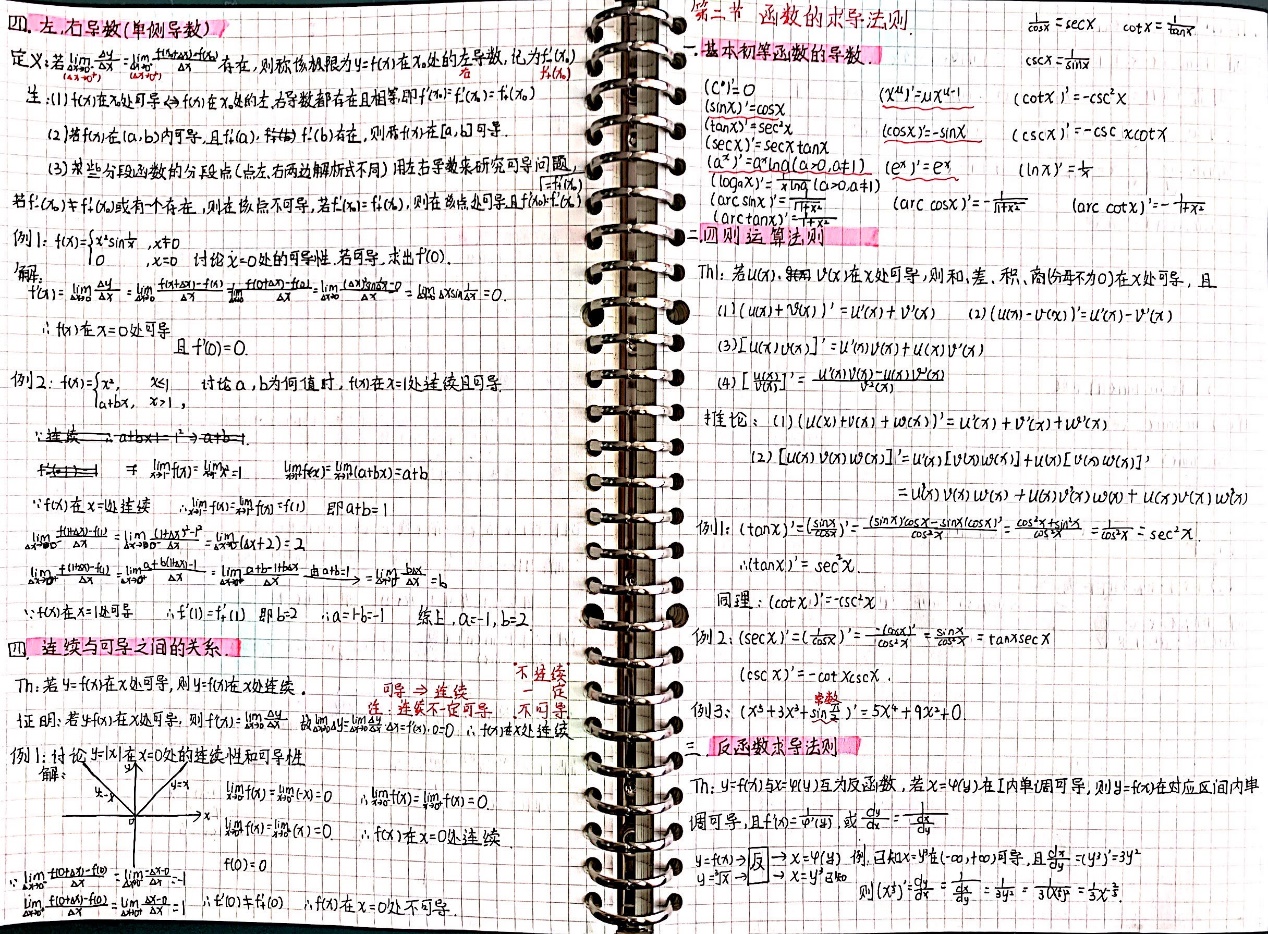 四. 左、右导数(单侧导数)
定义:若 lim(Δx→0⁻) Δy/Δx = lim(Δx→0⁻) [f(x₀+Δx)-f(x₀)]/Δx 存在,则称该极限为y=f(x)在x₀处的左导数,记为f'₋(x₀)
(Δx→0⁺) (Δx→0⁺) 右 f'₊(x₀)
注:(1) f(x)在x₀处可导⇔f(x)在x₀处的左、右导数都存在且相等即f'(x₀)=f'₋(x₀)=f'₊(x₀)
(2)若f(x)在(a,b)内可导,且f'₊(a).f'₋(b)存在,则称f(x)在[a,b]可导.
(3)某些分段函数的分段点(点左、右两边解析式不同)用左右导数来研究可导问题,
=f'₊(x₀)
若f'₋(x₀)≠f'₊(x₀)或有一个存在,则在该点不可导,若f'₋(x₀)=f'₊(x₀),则在该点处可导且f'(x₀)=f'₋(x₀)
例1: f(x)={x²sin1/x ,x≠0
0 ,x=0 讨论x=0处的可导性,若可导,求出f'(0).
解:
f'(x)=lim(Δx→0) Δy/Δx = lim(Δx→0) [f(x+Δx)-f(x)]/Δx = lim [f(0+Δx)-f(0)]/Δx = lim(Δx→0) [(Δx)²sin1/Δx-0]/Δx = lim(Δx→0) Δxsin1/Δx = 0.
∴f(x)在x=0处可导
且f'(0)=0.
例2: f(x)={x², x≤1 讨论a,b为何值时,f(x)在x=1处连续且可导
a+bx, x>1,
∵连续 ∴a+b×1=1²⇒a+b=1.
lim(x→1⁻)f(x)=lim(x→1⁻)x²=1 lim(x→1⁺)f(x)=lim(x→1⁺)(a+bx)=a+b
∵f(x)在x=1处连续 ∴lim(x→1⁻)f(x)=lim(x→1⁺)f(x)=f(1) 即a+b=1
lim(Δx→0⁻) [f(1+Δx)-f(1)]/Δx = lim(Δx→0⁻) [(1+Δx)²-1²]/Δx = lim(Δx→0⁻)(Δx+2)=2
lim(Δx→0⁺) [f(1+Δx)-f(1)]/Δx = lim(Δx→0⁺) [a+b(1+Δx)-1]/Δx = lim(Δx→0⁺) [a+b-1+bΔx]/Δx 由a+b=1 → = lim(Δx→0⁺) bΔx/Δx = b
∵f(x)在x=1处可导 ∴f'₋(1)=f'₊(1) 即b=2 ∴a=1-b=-1 综上,a=-1,b=2
四. 连续与可导之间的关系.
Th:若y=f(x)在x处可导,则y=f(x)在x处连续.
可导⇒连续
注:连续不一定可导
不连续
一定
不可导
证明:若y=f(x)在x处可导,则f'(x)=lim(Δx→0) Δy/Δx 故lim(Δx→0)Δy=lim(Δx→0) Δy/Δx·Δx=f'(x)·0=0 ∴f(x)在x处连续
例1:讨论y=|x|在x=0处的连续性和可导性
解:
y
y=-x
y=x
0
x
lim(x→0⁻)f(x)=lim(x→0⁻)(-x)=0 ∴lim(x→0⁻)f(x)=lim(x→0⁺)f(x)=0
lim(x→0⁺)f(x)=lim(x→0⁺)(x)=0 ∴f(x)在x=0处连续
f(0)=0
∵lim(Δx→0⁻) [f(0+Δx)-f(0)]/Δx = lim(Δx→0⁻) [-Δx-0]/Δx = -1
lim(Δx→0⁺) [f(0+Δx)-f(0)]/Δx = lim(Δx→0⁺) [Δx-0]/Δx = 1 ∴f'₋(0)≠f'₊(0) ∴f(x)在x=0处不可导.
第二节 函数的求导法则.
1/cosx=secx cotx=1/tanx
cscx=1/sinx
一.基本初等函数的导数.
(C)'=0 (x^μ)'=μx^(μ-1) (cotx)'=-csc²x
(sinx)'=cosx
(tanx)'=sec²x (cosx)'=-sinx (cscx)'=-cscxcotx
(secx)'=secxtanx
(aˣ)'=aˣlna(a>0,a≠1) (eˣ)'=eˣ (lnx)'=1/x
(logₐx)'=1/(xlna)(a>0,a≠1)
(arc sinx)'=1/√(1-x²) (arc cosx)'=-1/√(1-x²) (arc cotx)'=-1/(1+x²)
(arc tanx)'=1/(1+x²)
二.四则运算法则
Th1:若u(x),v(x)在x处可导,则和、差、积、商(分母不为0)在x处可导,且
(1)(u(x)+v(x))'=u'(x)+v'(x) (2)(u(x)-v(x))'=u'(x)-v'(x)
(3)[u(x)v(x)]'=u'(x)v(x)+u(x)v'(x)
(4)[u(x)/v(x)]'=[u'(x)v(x)-u(x)v'(x)]/v²(x)
推论:(1)(u(x)+v(x)+w(x))'=u'(x)+v'(x)+w'(x)
(2)[u(x)v(x)w(x)]'=u'(x)[v(x)w(x)]+u(x)[v(x)w(x)]'
=u'(x)v(x)w(x)+u(x)v'(x)w(x)+u(x)v(x)w'(x)
例1:(tanx)'=(sinx/cosx)'=[(sinx)'cosx-sinx(cosx)']/cos²x=(cos²x+sin²x)/cos²x=1/cos²x=sec²x.
∴(tanx)'=sec²x.
同理:(cotx)'=-csc²x
例2:(secx)'=(1/cosx)'=-(cosx)'/cos²x=sinx/cos²x=tanxsecx
(cscx)'=-cotxcscx.
常数
例3:(x⁵+3x³+sinπ/2)'=5x⁴+9x²+0
三.反函数求导法则
Th:y=f(x)与x=φ(y)互为反函数,若x=φ(y)在I内单调可导,则y=f(x)在对应区间内单
调可导,且f'(x)=1/φ'(y),或dy/dx=1/(dx/dy)
y=f(x)→反→x=φ(y) 例,已知x=y³在(-∞,+∞)可导,且dx/dy=(y³)'=3y²
y=³√x→反→x=y³已知
则(x^(1/3))'=dy/dx=1/(dx/dy)=1/(3y²)=1/(3(x^(1/3))²)=1/3x^(-2/3).